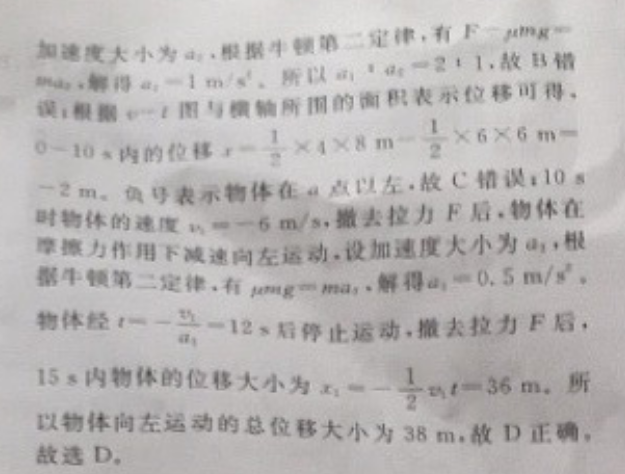 加速度大小为 a₂,根据牛顿第二定律,有 F-μmg=
ma₂,解得 a₂=1 m/s²。所以 a₁:a₂=2:1,故 B 错
误;根据 v-t 图与横轴所围的面积表示位移可得,
0~10 s 内的位移 x=\frac{1}{2}×4×8 m-\frac{1}{2}×6×6 m=
-2 m。负号表示物体在 a 点以左,故 C 错误;10 s
时物体的速度 v₁=-6 m/s,撤去拉力 F 后,物体在
摩擦力作用下减速向左运动,设加速度大小为 a₃,根
据牛顿第二定律,有 μmg=ma₃,解得 a₃=0.5 m/s²。
物体经 t=-\frac{v₁}{a₃}=12 s 后停止运动,撤去拉力 F 后,
15 s 内物体的位移大小为 x₁=-\frac{1}{2}v₁t=36 m。所
以物体向左运动的总位移大小为 38 m,故 D 正确。
故选 D。